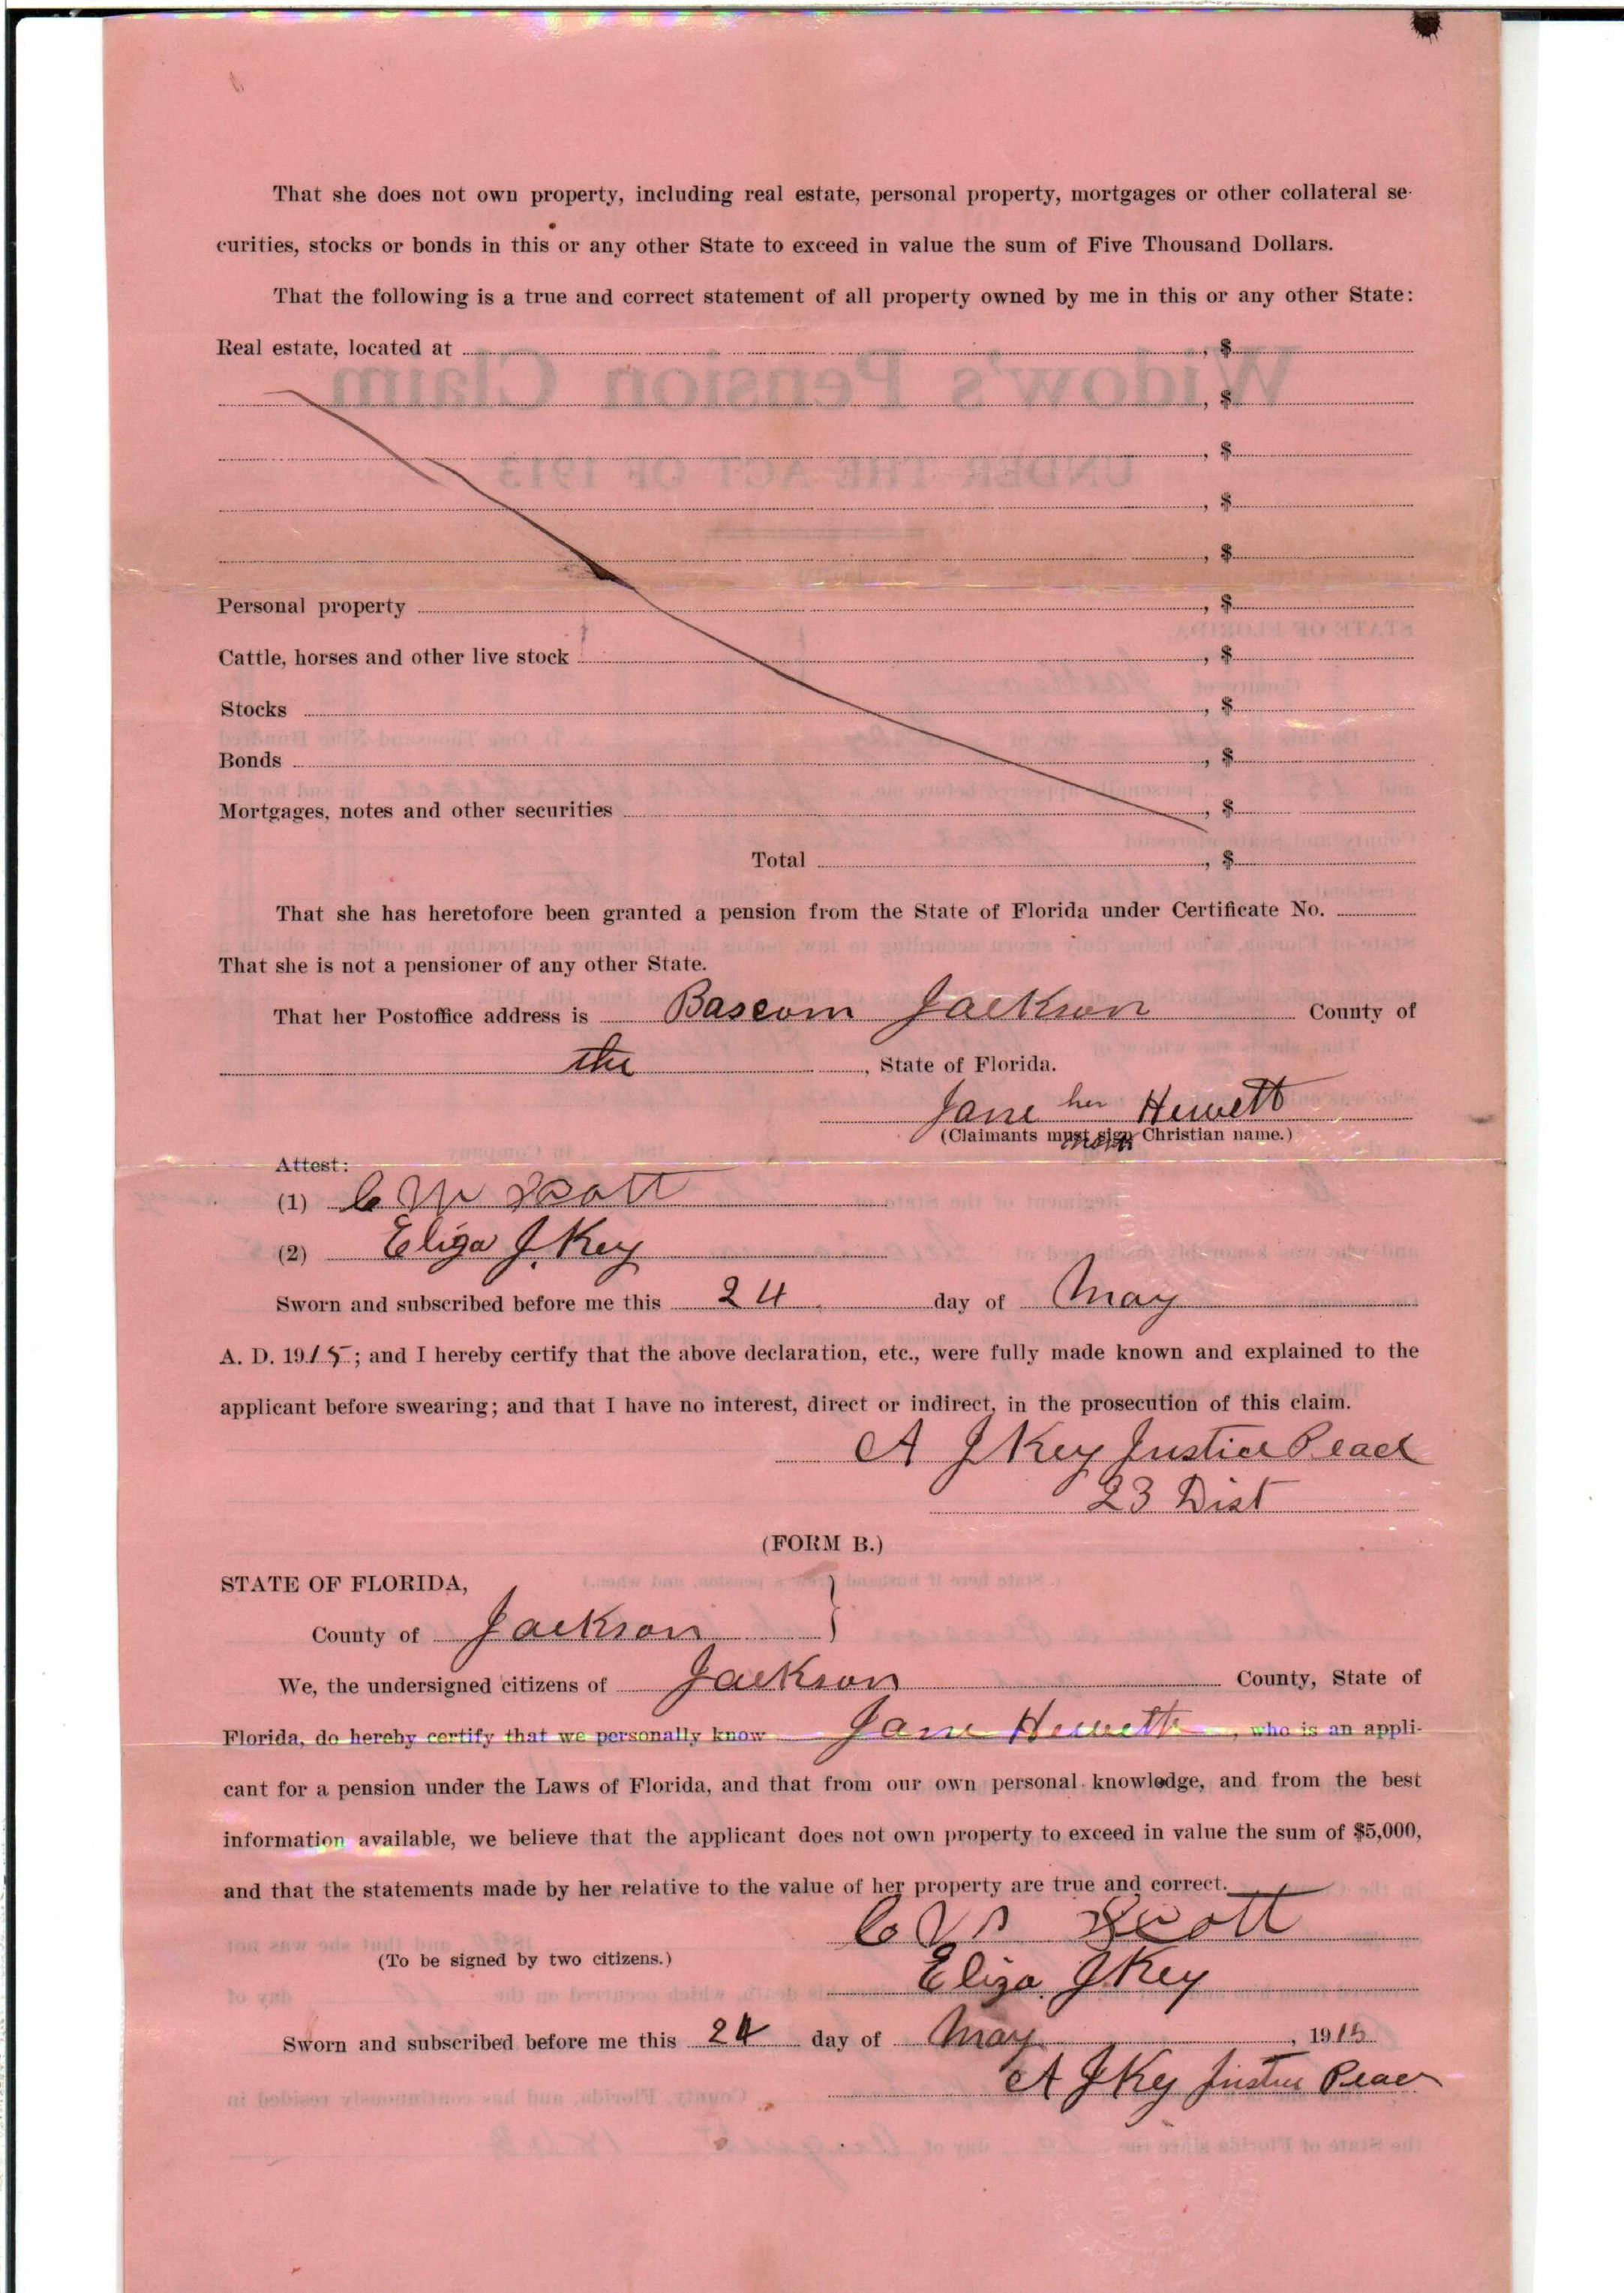 That she does not own property, including real estate, personal property, mortgages or other collateral se-
curities, stocks or bonds in this or any other State to exceed in value the sum of Five Thousand Dollars.
That the following is a true and correct statement of all property owned by me in this or any other State:
Real estate, located at , $
, $
, $
, $
, $
Personal property , $
Cattle, horses and other live stock , $
Stocks , $
Bonds , $
Mortgages, notes and other securities , $
Total , $
That she has heretofore been granted a pension from the State of Florida under Certificate No.
That she is not a pensioner of any other State.
That her Postoffice address is Bascom Jackson County of
the , State of Florida.
Jane her Hewett
(Claimants must sign Christian name.)
mark
Attest:
(1) C W Scott
(2) Eliza J. Key
Sworn and subscribed before me this 24 day of May
A. D. 1915; and I hereby certify that the above declaration, etc., were fully made known and explained to the
applicant before swearing; and that I have no interest, direct or indirect, in the prosecution of this claim.
A J Key Justice Peace
23 Dist
(FORM B.)
STATE OF FLORIDA,
County of Jackson }
We, the undersigned citizens of Jackson County, State of
Florida, do hereby certify that we personally know Jane Hewett, who is an appli-
cant for a pension under the Laws of Florida, and that from our own personal knowledge, and from the best
information available, we believe that the applicant does not own property to exceed in value the sum of $5,000,
and that the statements made by her relative to the value of her property are true and correct.
Scott
(To be signed by two citizens.)
Eliza. J Key
Sworn and subscribed before me this 24 day of May , 1915
A J Key Justice Peace